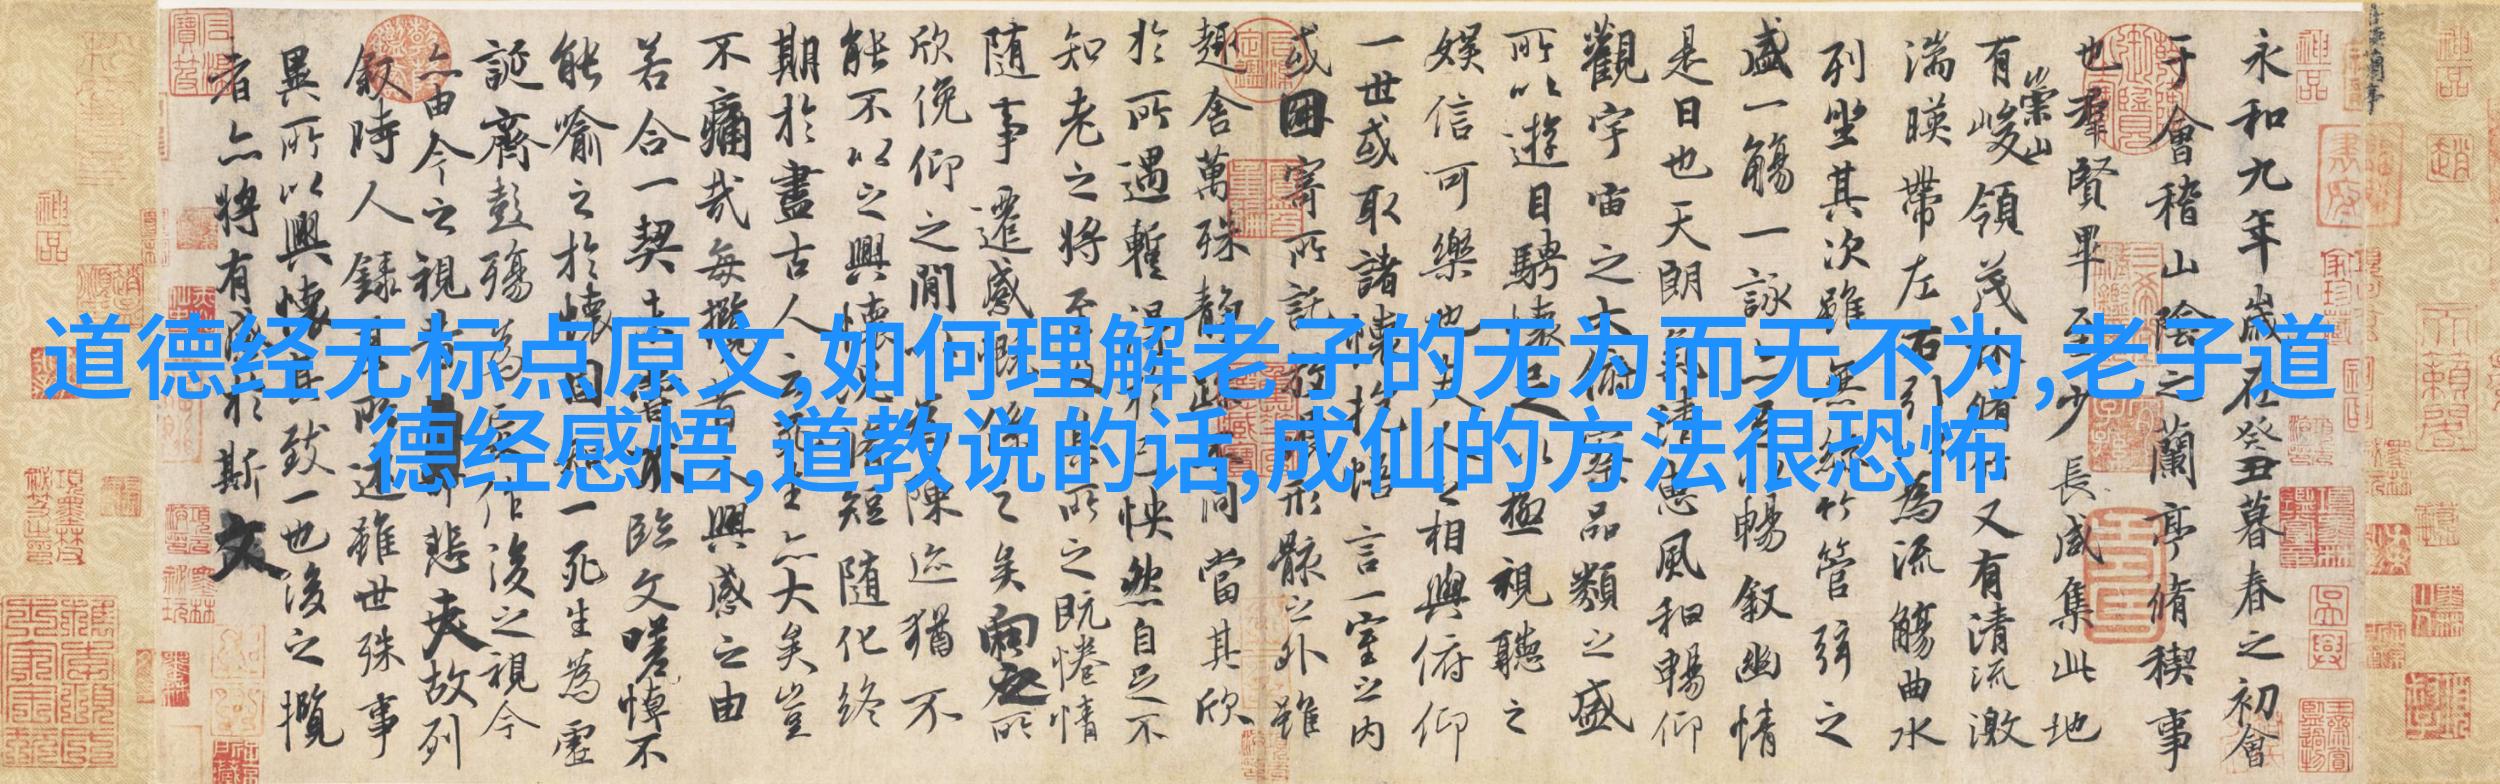 道德经无标点原文,如何理解老子的无为而无不为,老子道
德经感悟,道教说的话,成仙的方法很恐怖
永和九年歲在癸丑暮春之初會
于會稽山陰之蘭亭脩稧事
也羣賢畢至少長咸集此地
有峻領茂林脩竹又有清流激
崇山
湍暎帶左右引以為流觴曲水
列坐其次雖無絲竹管弦之
盛一觴一詠亦足以暢敘幽情
是日也天朗氣清惠風和暢仰
觀宇宙之大俯察品類之盛
所以遊目騁懷足以極視聽之
娛信可樂也夫人之相與俯仰
一世或取諸懷抱悟言一室之內
或因寄所託放浪形骸之外雖
趣舍萬殊靜躁不同當其欣
於所遇暫得於己怏然自足不
知老之將至及其所之既惓情
隨事遷感慨係之矣向之所
欣俛仰之閒以為陳迹猶不
能不以之興懷況脩短隨化終
期於盡古人云死生亦大矣豈
不痛哉每攬昔人興感之由
若合一契未嘗不臨文嗟悼不
能喻之於懷固知一死生為虛
誕齊彭殤為妄作後之視今
亦由今之視昔悲夫故列
敘時人錄其所述雖世殊事
異所以興懷其致一也後之攬
者亦將有感於斯文